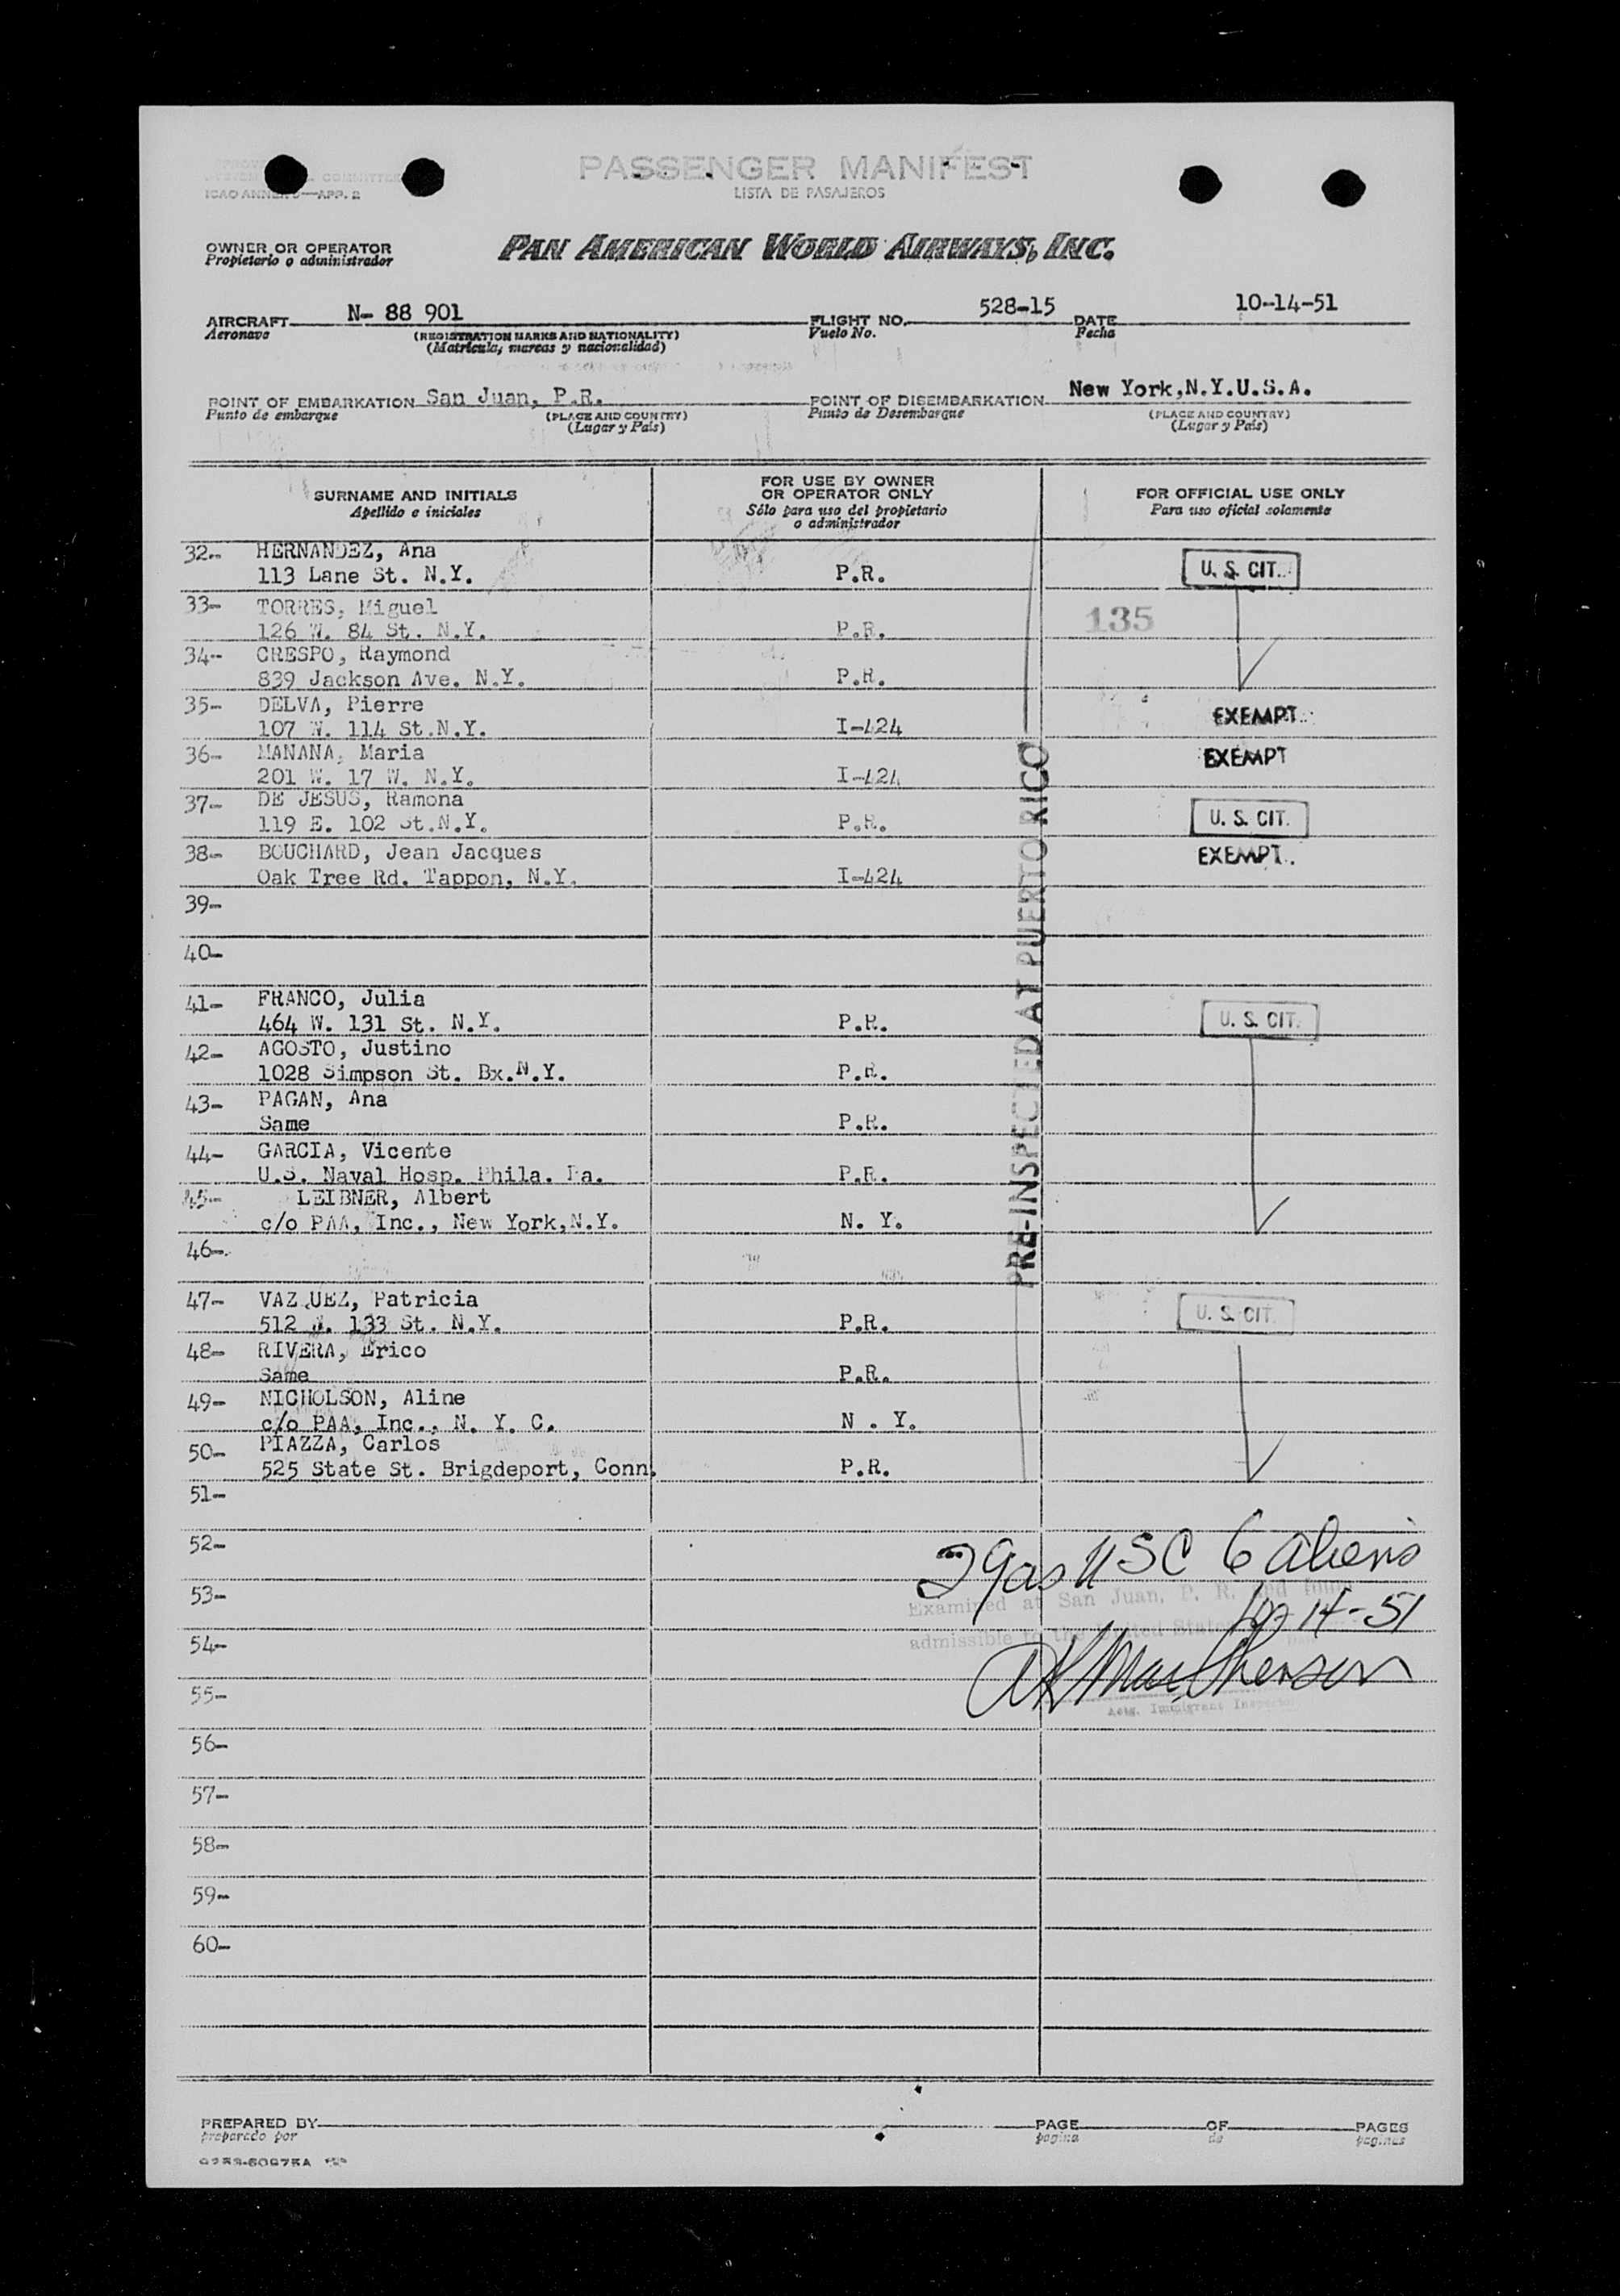 COMMITTEE
ICAO ANNEX 9—APP. 2
PASSENGER MANIFEST
LISTA DE PASAJEROS
OWNER OR OPERATOR
Propietario o administrador
PAN AMERICAN WORLD AIRWAYS, INC.
AIRCRAFT N- 88 901 FLIGHT NO. 528-15 DATE 10-14-51
Aeronave (REGISTRATION MARKS AND NATIONALITY) Vuelo No. Fecha
(Matrícula, marcas y nacionalidad)
POINT OF EMBARKATION San Juan, P.R. POINT OF DISEMBARKATION New York,N.Y.U.S.A.
Punto de embarque (PLACE AND COUNTRY) Punto de Desembarque (PLACE AND COUNTRY)
(Lugar y País) (Lugar y País)
SURNAME AND INITIALS FOR USE BY OWNER OR OPERATOR ONLY FOR OFFICIAL USE ONLY
Apellido e iniciales Sólo para uso del propietario o administrador Para uso oficial solamente
32- HERNANDEZ, Ana
113 Lane St. N.Y. P.R. U. S. CIT.
33- TORRES, Miguel 135
126 W. 84 St. N.Y. P.R.
34- CRESPO, Raymond
839 Jackson Ave. N.Y. P.R.
35- DELVA, Pierre EXEMPT
107 W. 114 St.N.Y. I-424
36- MANANA, Maria EXEMPT
201 W. 17 W. N.Y. I-424
37- DE JESUS, Ramona
119 E. 102 St.N.Y. P.R. U. S. CIT.
38- BOUCHARD, Jean Jacques EXEMPT
Oak Tree Rd. Tappon, N.Y. I-424
39-
40-
41- FRANCO, Julia
464 W. 131 St. N.Y. P.R. U. S. CIT.
42- AGOSTO, Justino
1028 Simpson St. Bx.N.Y. P.R.
43- PAGAN, Ana
Same P.R.
44- GARCIA, Vicente
U.S. Naval Hosp. Phila. Pa. P.R.
45- LEIBNER, Albert
c/o PAA, Inc., New York,N.Y. N. Y.
46-
PRE-INSPECTED AT PUERTO RICO
47- VAZ UEZ, Patricia
512 W. 133 St. N.Y. P.R. U. S. CIT.
48- RIVERA, Erico
Same P.R.
49- NICHOLSON, Aline
c/o PAA, Inc., N. Y. C. N . Y.
50- PIAZZA, Carlos
525 State St. Brigdeport, Conn. P.R.
51-
52- USC 6 Aliens
53- Examined at San Juan, P. R. and found
14-51
54- admissible to the United States
55-
Actg. Immigrant Inspector
56-
57-
58-
59-
60-
PREPARED BY PAGE OF PAGES
preparado por pagina de paginas